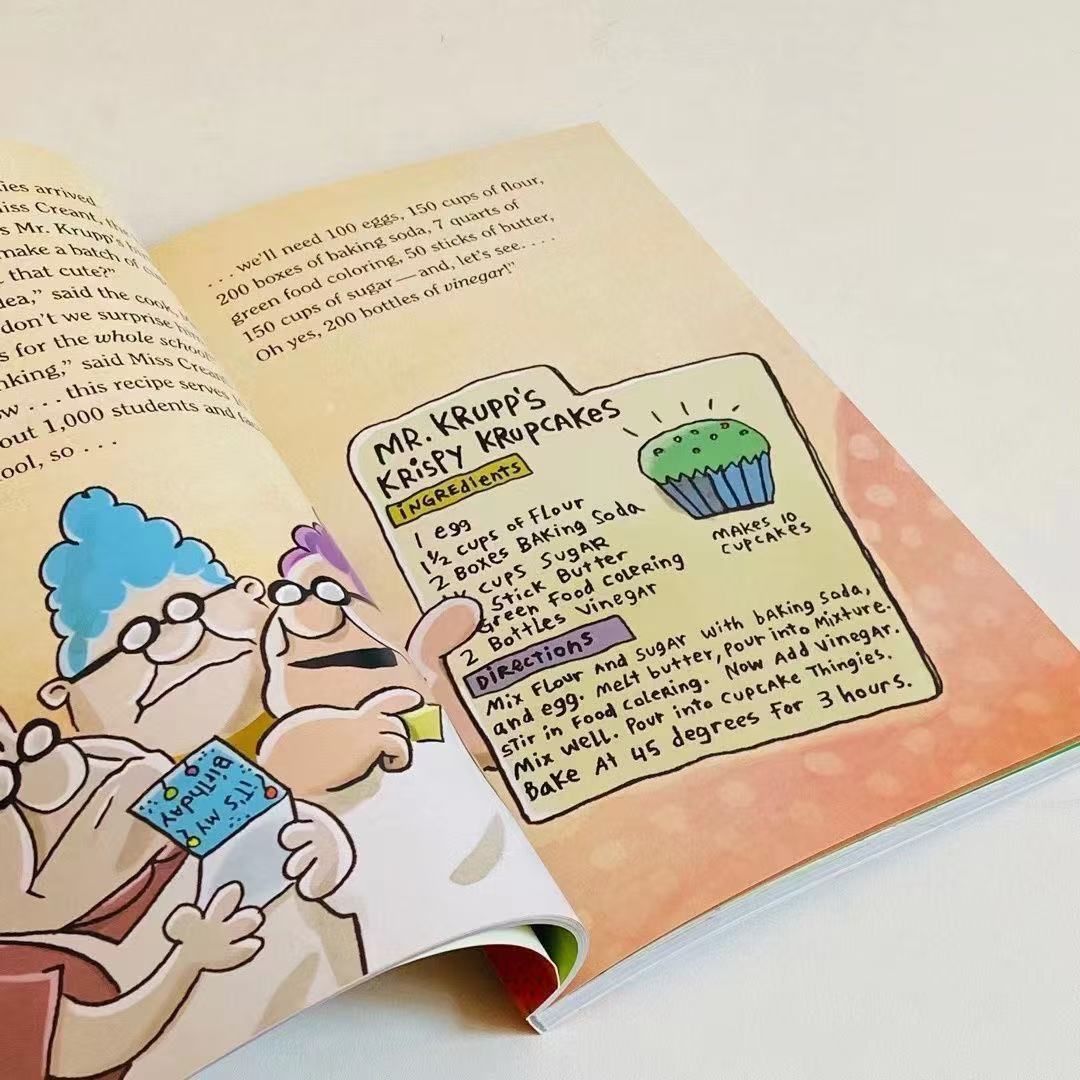 ies arrived
Miss Creant,
s Mr. Krupp's
make a batch of
that cute?"
dea," said the cook,
don't we surprise
s for the whole school
nking," said Miss Creant
ow . . . this recipe serves
out 1,000 students and
ool, so . . .
IT'S MY
BIRTHDAY
. . . we'll need 100 eggs, 150 cups of flour,
200 boxes of baking soda, 7 quarts of
green food coloring, 50 sticks of butter,
150 cups of sugar—and, let's see. . . .
Oh yes, 200 bottles of vinegar!"
MR. KRUPP'S
KRISPY KRUPCAKES
INGREdients
1 egg
1 1/2 cups of FLour
2 Boxes BAKing Soda
CUPS SUGAR
Stick Butter
Green Food COLERing
2 Bottles Vinegar
MAKES 10
CUPCAKES
Directions
Mix FLour and Sugar with baking Soda,
and egg. Melt butter, pour into Mixture.
Stir in Food COLERing. Now Add Vinegar.
Mix well. Pour into CUPCAKE Thingies.
Bake At 45 degrees for 3 hours.